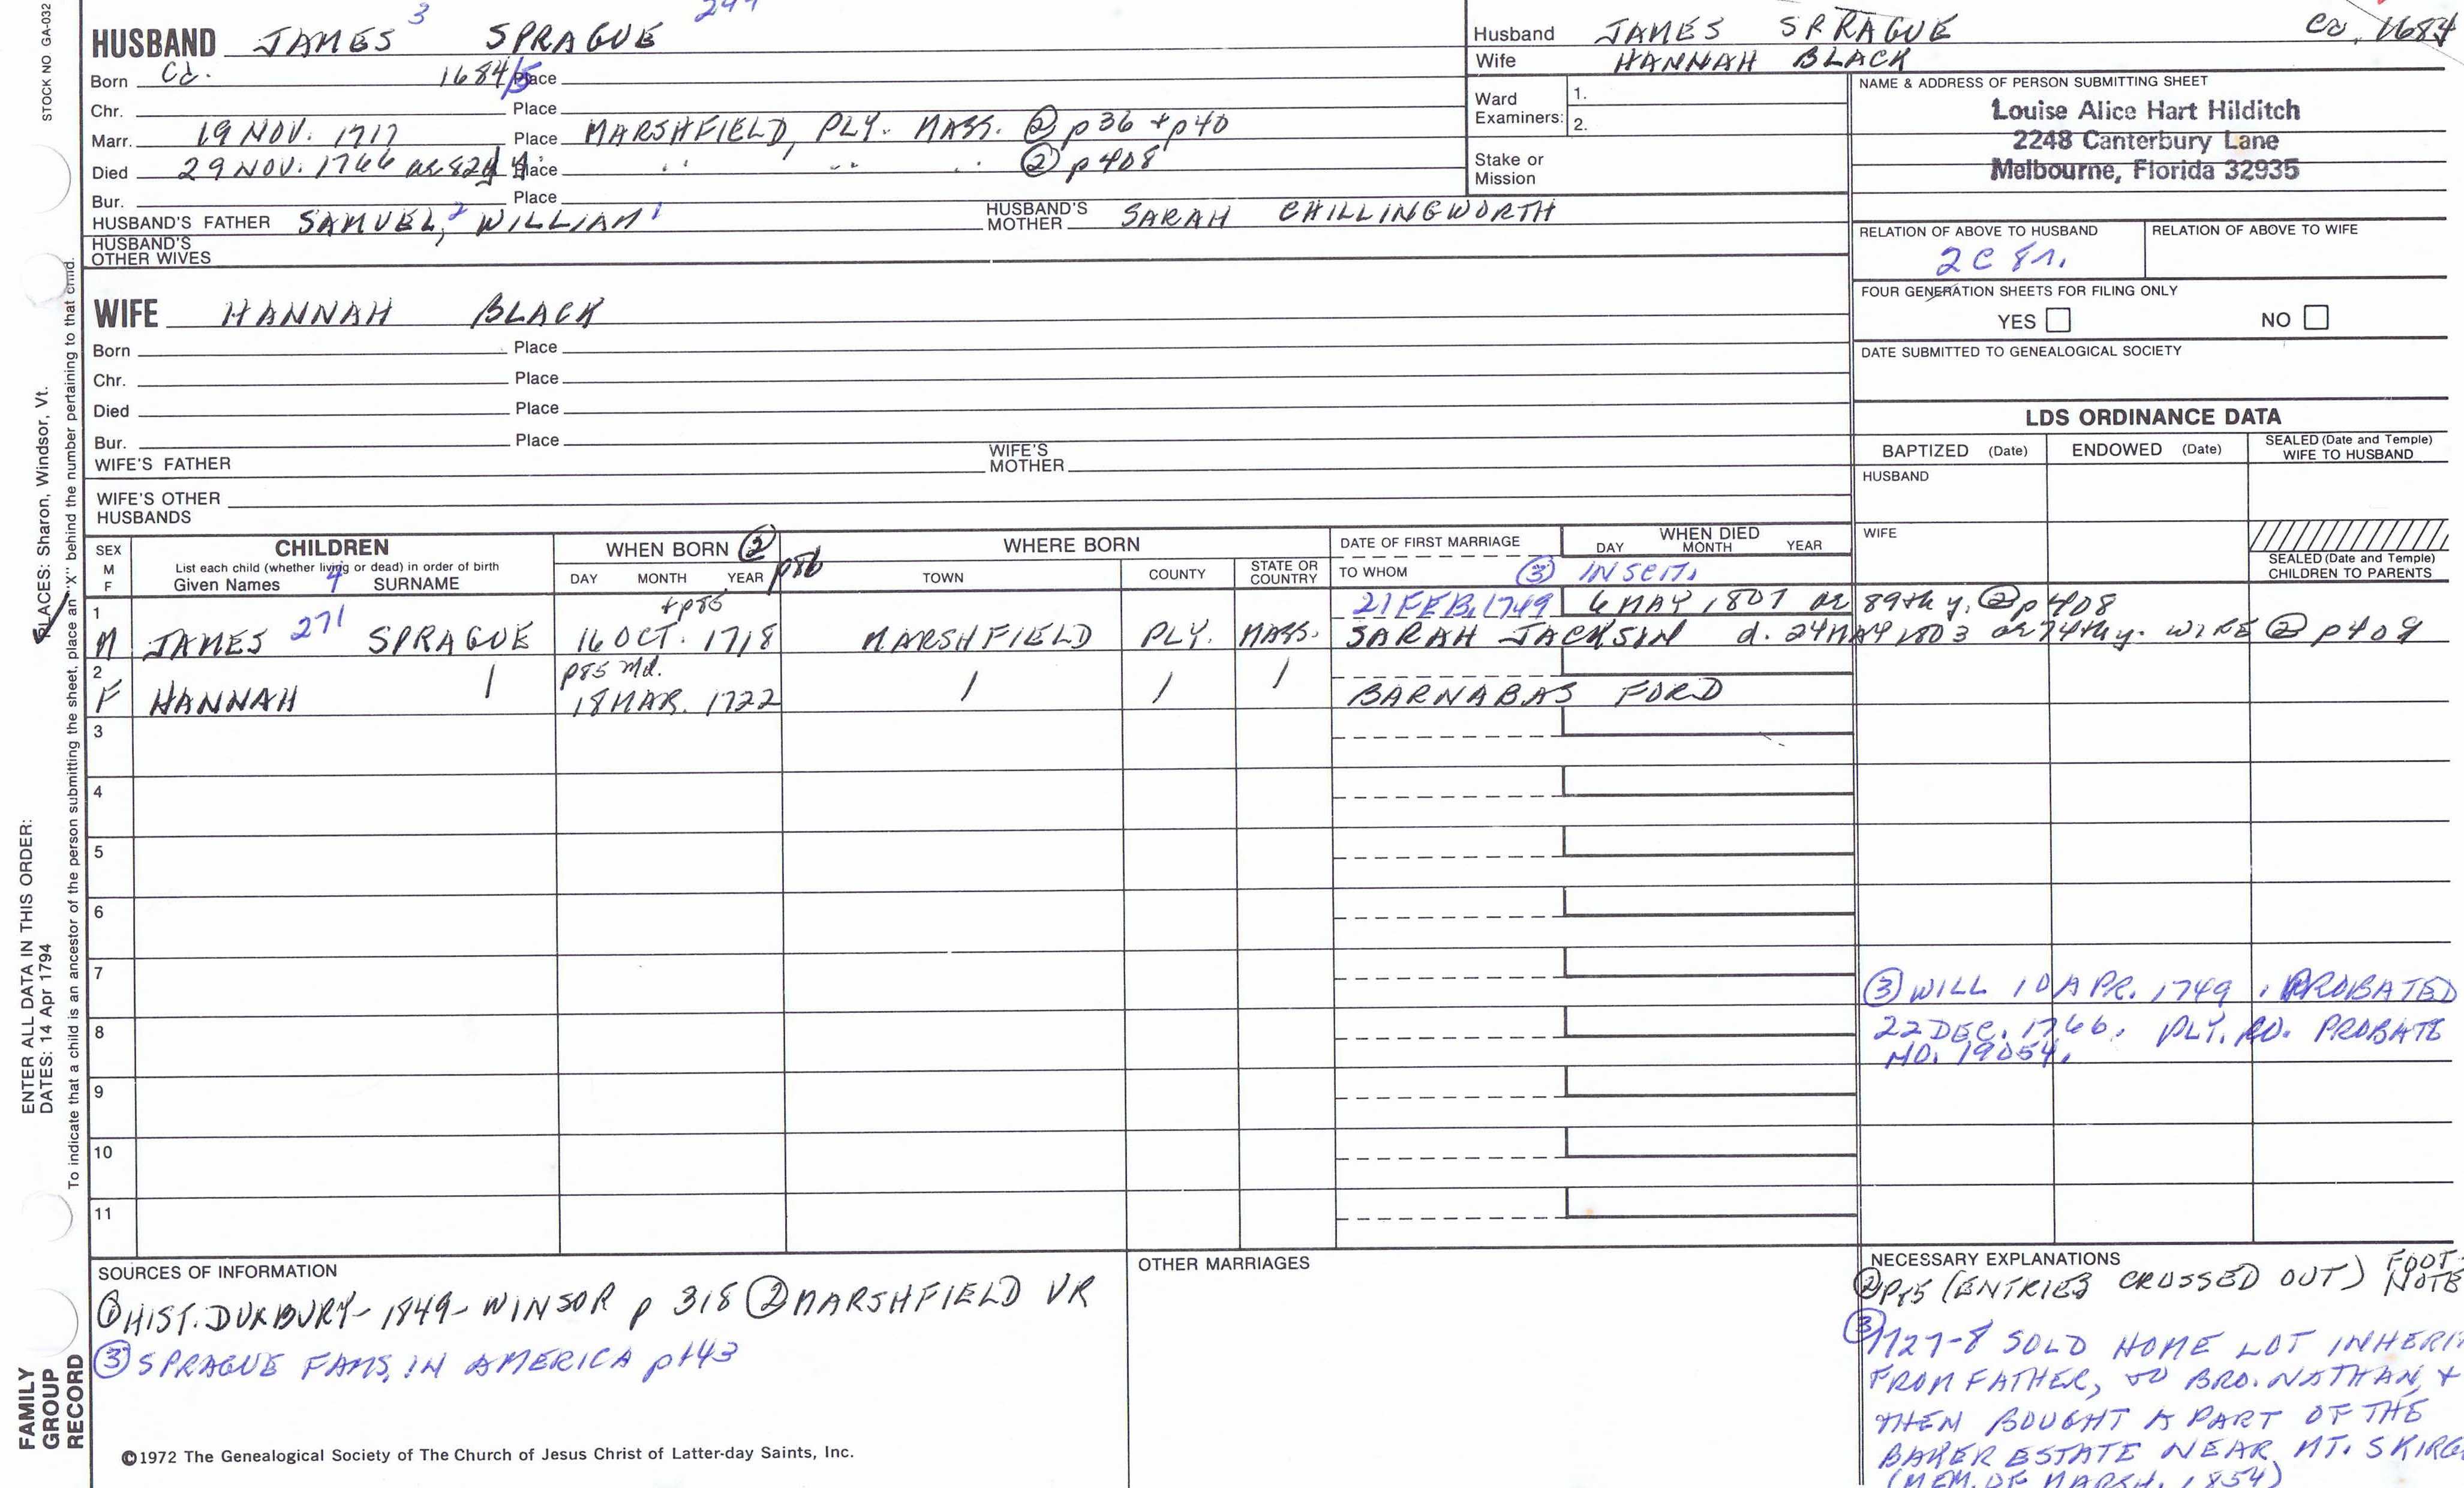 STOCK NO. GA-032
3
HUSBAND JAMES SPRAGUE
Born Ca. 1684/5 Place
Chr. Place
Marr. 19 NOV. 1717 Place MARSHFIELD, PLY. MASS. ② p36 + p40
Died 29 NOV. 1766 ae 82d y. Place " " " ② p408
Bur. Place
HUSBAND'S FATHER SAMUEL,² WILLIAM¹ HUSBAND'S MOTHER SARAH CHILLINGWORTH
HUSBAND'S OTHER WIVES
Husband JAMES SPRAGUE Ca. 1684
Wife HANNAH BLACK
Ward Examiners: 1.
2.
Stake or Mission
NAME & ADDRESS OF PERSON SUBMITTING SHEET
Louise Alice Hart Hilditch
2248 Canterbury Lane
Melbourne, Florida 32935
RELATION OF ABOVE TO HUSBAND RELATION OF ABOVE TO WIFE
2C 8r.
FOUR GENERATION SHEETS FOR FILING ONLY
YES NO
DATE SUBMITTED TO GENEALOGICAL SOCIETY
WIFE HANNAH BLACK
Born Place
Chr. Place
Died Place
Bur. Place
WIFE'S FATHER WIFE'S MOTHER
WIFE'S OTHER HUSBANDS
LDS ORDINANCE DATA
BAPTIZED (Date) ENDOWED (Date) SEALED (Date and Temple) WIFE TO HUSBAND
HUSBAND
WIFE
SEALED (Date and Temple)
CHILDREN TO PARENTS
SEX M F CHILDREN WHEN BORN ② p86 WHERE BORN DATE OF FIRST MARRIAGE WHEN DIED
List each child (whether living or dead) in order of birth
Given Names 4 SURNAME DAY MONTH YEAR TOWN COUNTY STATE OR COUNTRY TO WHOM DAY MONTH YEAR
③ INSCR.
1 +p85 21 FEB. 1749 6 MAY 1807 ae 89th y. ② p408
M JAMES 271 SPRAGUE 16 OCT. 1718 MARSHFIELD PLY. MASS. SARAH JACKSON d. 24 MAY 1803 ae 74th y. WIFE ② p409
2 p85 Md.
F HANNAH / 18 MAR. 1722 / / / BARNABAS FORD
3
4
5
6
7
8
9
10
11
③ WILL 10 APR. 1749, PROBATED
22 DEC. 1766. PLY. PROBATE
NO. 19054.
SOURCES OF INFORMATION
① HIST. DUXBURY - 1849 - WINSOR p 318 ② MARSHFIELD VR
③ SPRAGUE FAMS. IN AMERICA p143
OTHER MARRIAGES
NECESSARY EXPLANATIONS
② p85 (ENTRIES CROSSED OUT) FOOT-NOTE
③ 1727-8 SOLD HOME LOT
FROM FATHER, TO BRO. NATHAN, +
THEN BOUGHT A PART OF THE
BAKER ESTATE NEAR MT.
(MEM. OF MARSH. 1854)
©1972 The Genealogical Society of The Church of Jesus Christ of Latter-day Saints, Inc.
FAMILY GROUP RECORD
ENTER ALL DATA IN THIS ORDER:
DATES: 14 Apr 1794
PLACES: Sharon, Windsor, Vt.
To indicate that a child is an ancestor of the person submitting the sheet, place an "X" behind the number pertaining to that child.